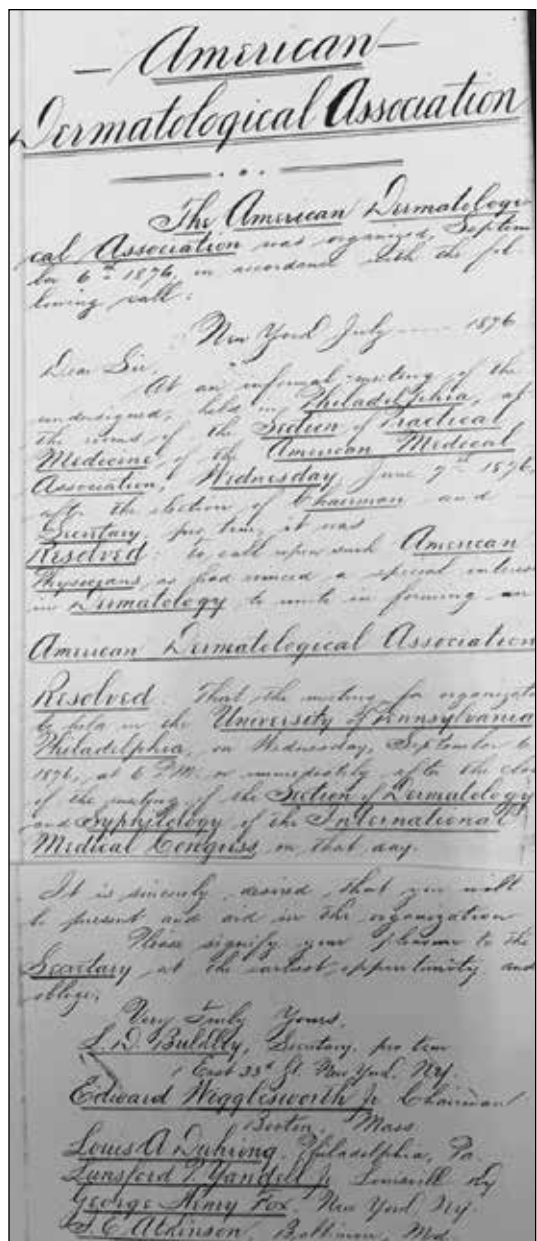 — American —
Dermatological Association
The American Dermatologi-
cal Association was organized, Septem
ber 6th 1876, in accordance with the fol-
lowing call:
New York July 1876
Dear Sir,
At an informal meeting of the
undersigned, held in Philadelphia, at
the rooms of the Section of Practical
Medicine, of the American Medical
Association, Wednesday, June 7th 1876,
after the election of Chairman and
Secretary pro tem, it was
Resolved: To call upon such American
Physicians as had evinced a special interest
in Dermatology to unite in forming an
American Dermatological Association
Resolved: That the meeting for organizatio
be held in the University of Pennsylvania
Philadelphia, on Wednesday, September 6,
1876, at 6 P.M. or immediately after the close
of the meeting of the Section of Dermatology
and Syphilology of the International
Medical Congress, on that day.
It is sincerely desired that you will
be present and aid in the organization
Please signify your pleasure to the
Secretary at the earliest opportunity and
oblige,
Very Truly Yours,
L. D. Bulkley, Secretary pro tem
1 East 33d St. New York, N.Y.
Edward Wigglesworth Jr Chairman
Boston, Mass.
Louis A Duhring. Philadelphia, Pa.
Lunsford P. Yandell Jr Louisville Ky
George Henry Fox. New York, N.Y.
Atkinson, Baltimore, Md.